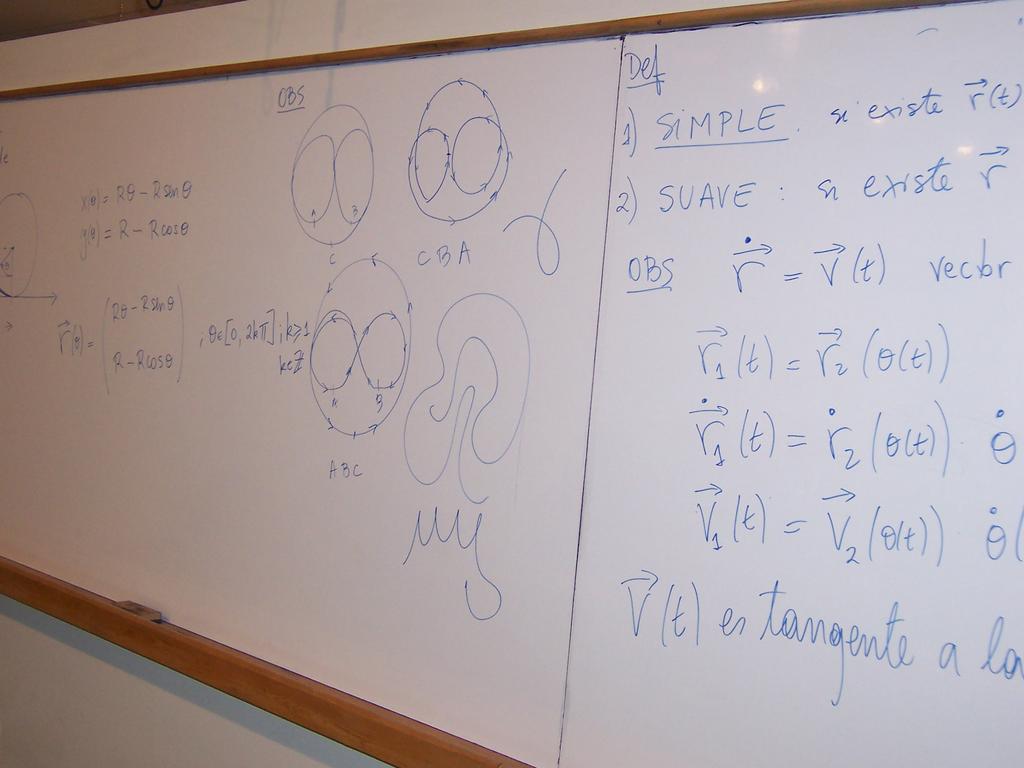 x(θ) = Rθ - R sinθ
y(θ) = R - R cosθ
r⃗(θ) = (Rθ - R sinθ
R - R cosθ) ; θ ∈ [0, 2kπ] ; k ≥ 1
k ∈ ℤ
OBS
A B
C
C B A
A B
A B C
Def
1) SIMPLE . si existe r⃗(t)
2) SUAVE : si existe r⃗
OBS ṙ⃗ = v⃗(t) vector
r⃗₁(t) = r⃗₂(θ(t))
ṙ⃗₁(t) = ṙ₂(θ(t)) · θ̇
v⃗₁(t) = v⃗₂(θ(t)) θ̇(
V⃗(t) es tangente a la